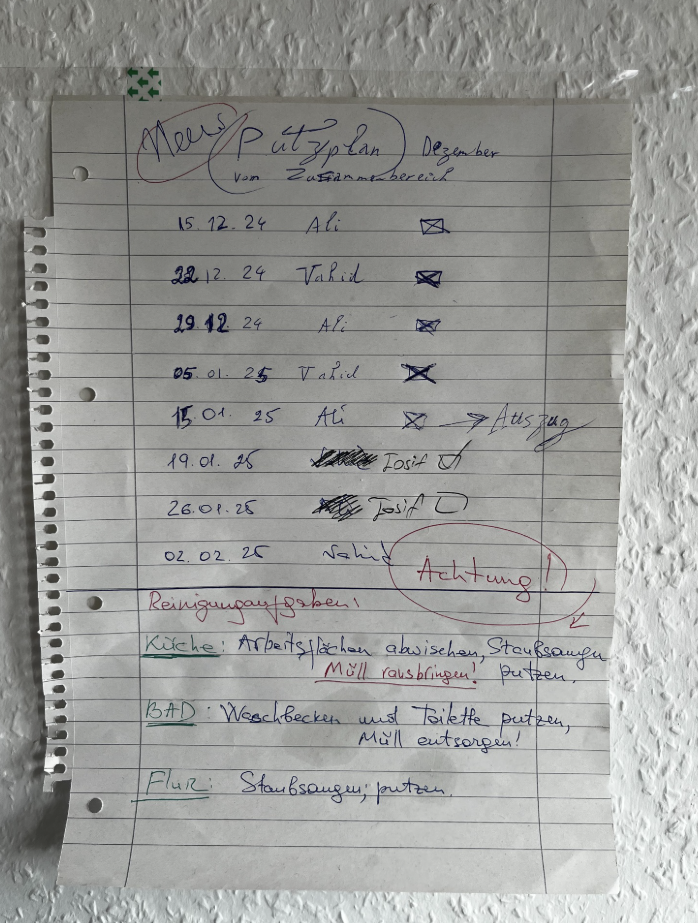 Neues Putzplan Dezember
vom Zusammenbereich
15.12.24 Ali
22.12.24 Vahid
29.12.24 Ali
05.01.25 Vahid
15.01.25 Ali → Auszug
19.01.25 Iosif
26.01.25 Iosif
02.02.25 Vahid
Achtung!
Reinigungaufgaben:
Küche: Arbeitsflächen abwischen, Staubsaugen
Müll rausbringen! putzen.
BAD: Waschbecken und Toilette putzen,
Müll entsorgen!
Flur: Staubsaugen, putzen.